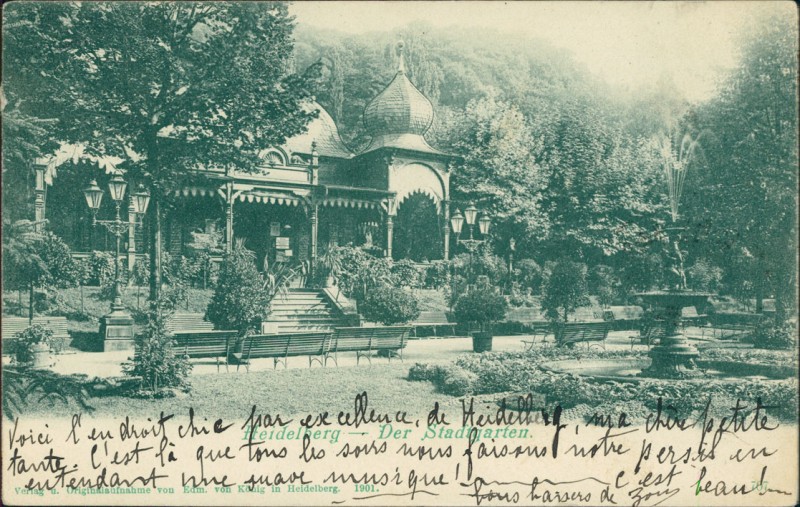 Voici l'endroit chic par excellence, de Heidelberg, ma chère petite
Heidelberg — Der Stadtgarten.
tante. C'est là que tous les soirs nous faisons notre persil en
entendant une suave musique! C'est beau!
Verlag u. Originalaufnahme von Edm. von König in Heidelberg. 1901.
bons baisers de